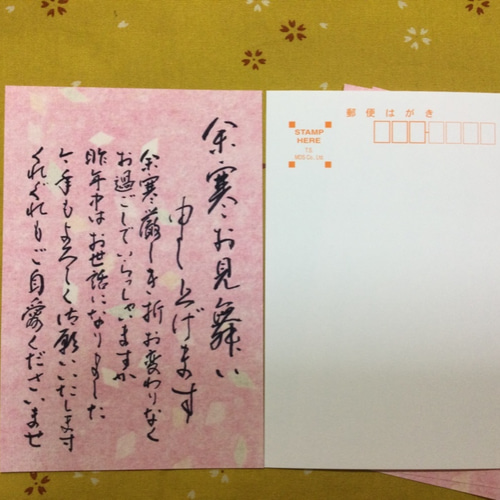 余寒お見舞い
申し上げます
余寒厳しき折お変わりなく
お過ごしでいらっしゃいますか
昨年中はお世話になりました
今年もよろしく御願いいたします
くれぐれもご自愛くださいませ
郵便はがき
STAMP
HERE
T.S.
MDS Co., Ltd.